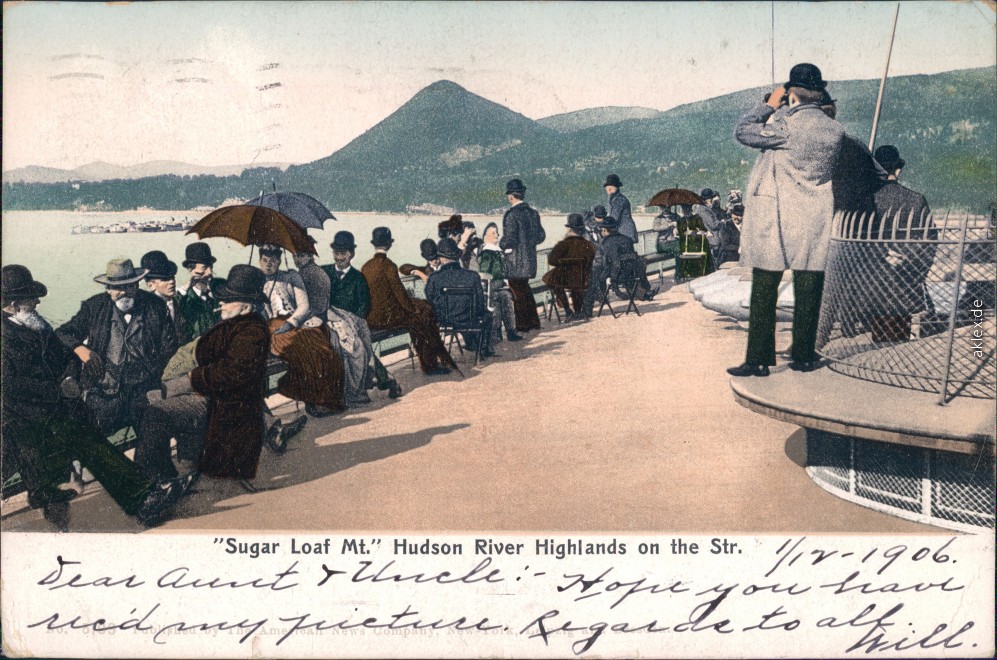 aklex.de
"Sugar Loaf Mt." Hudson River Highlands on the Str. 1/12-1906.
Dear Aunt & Uncle:- Hope you have
rec'd my picture. Regards to all.
Published by The American News Company, New-York, Leipzig
Will.